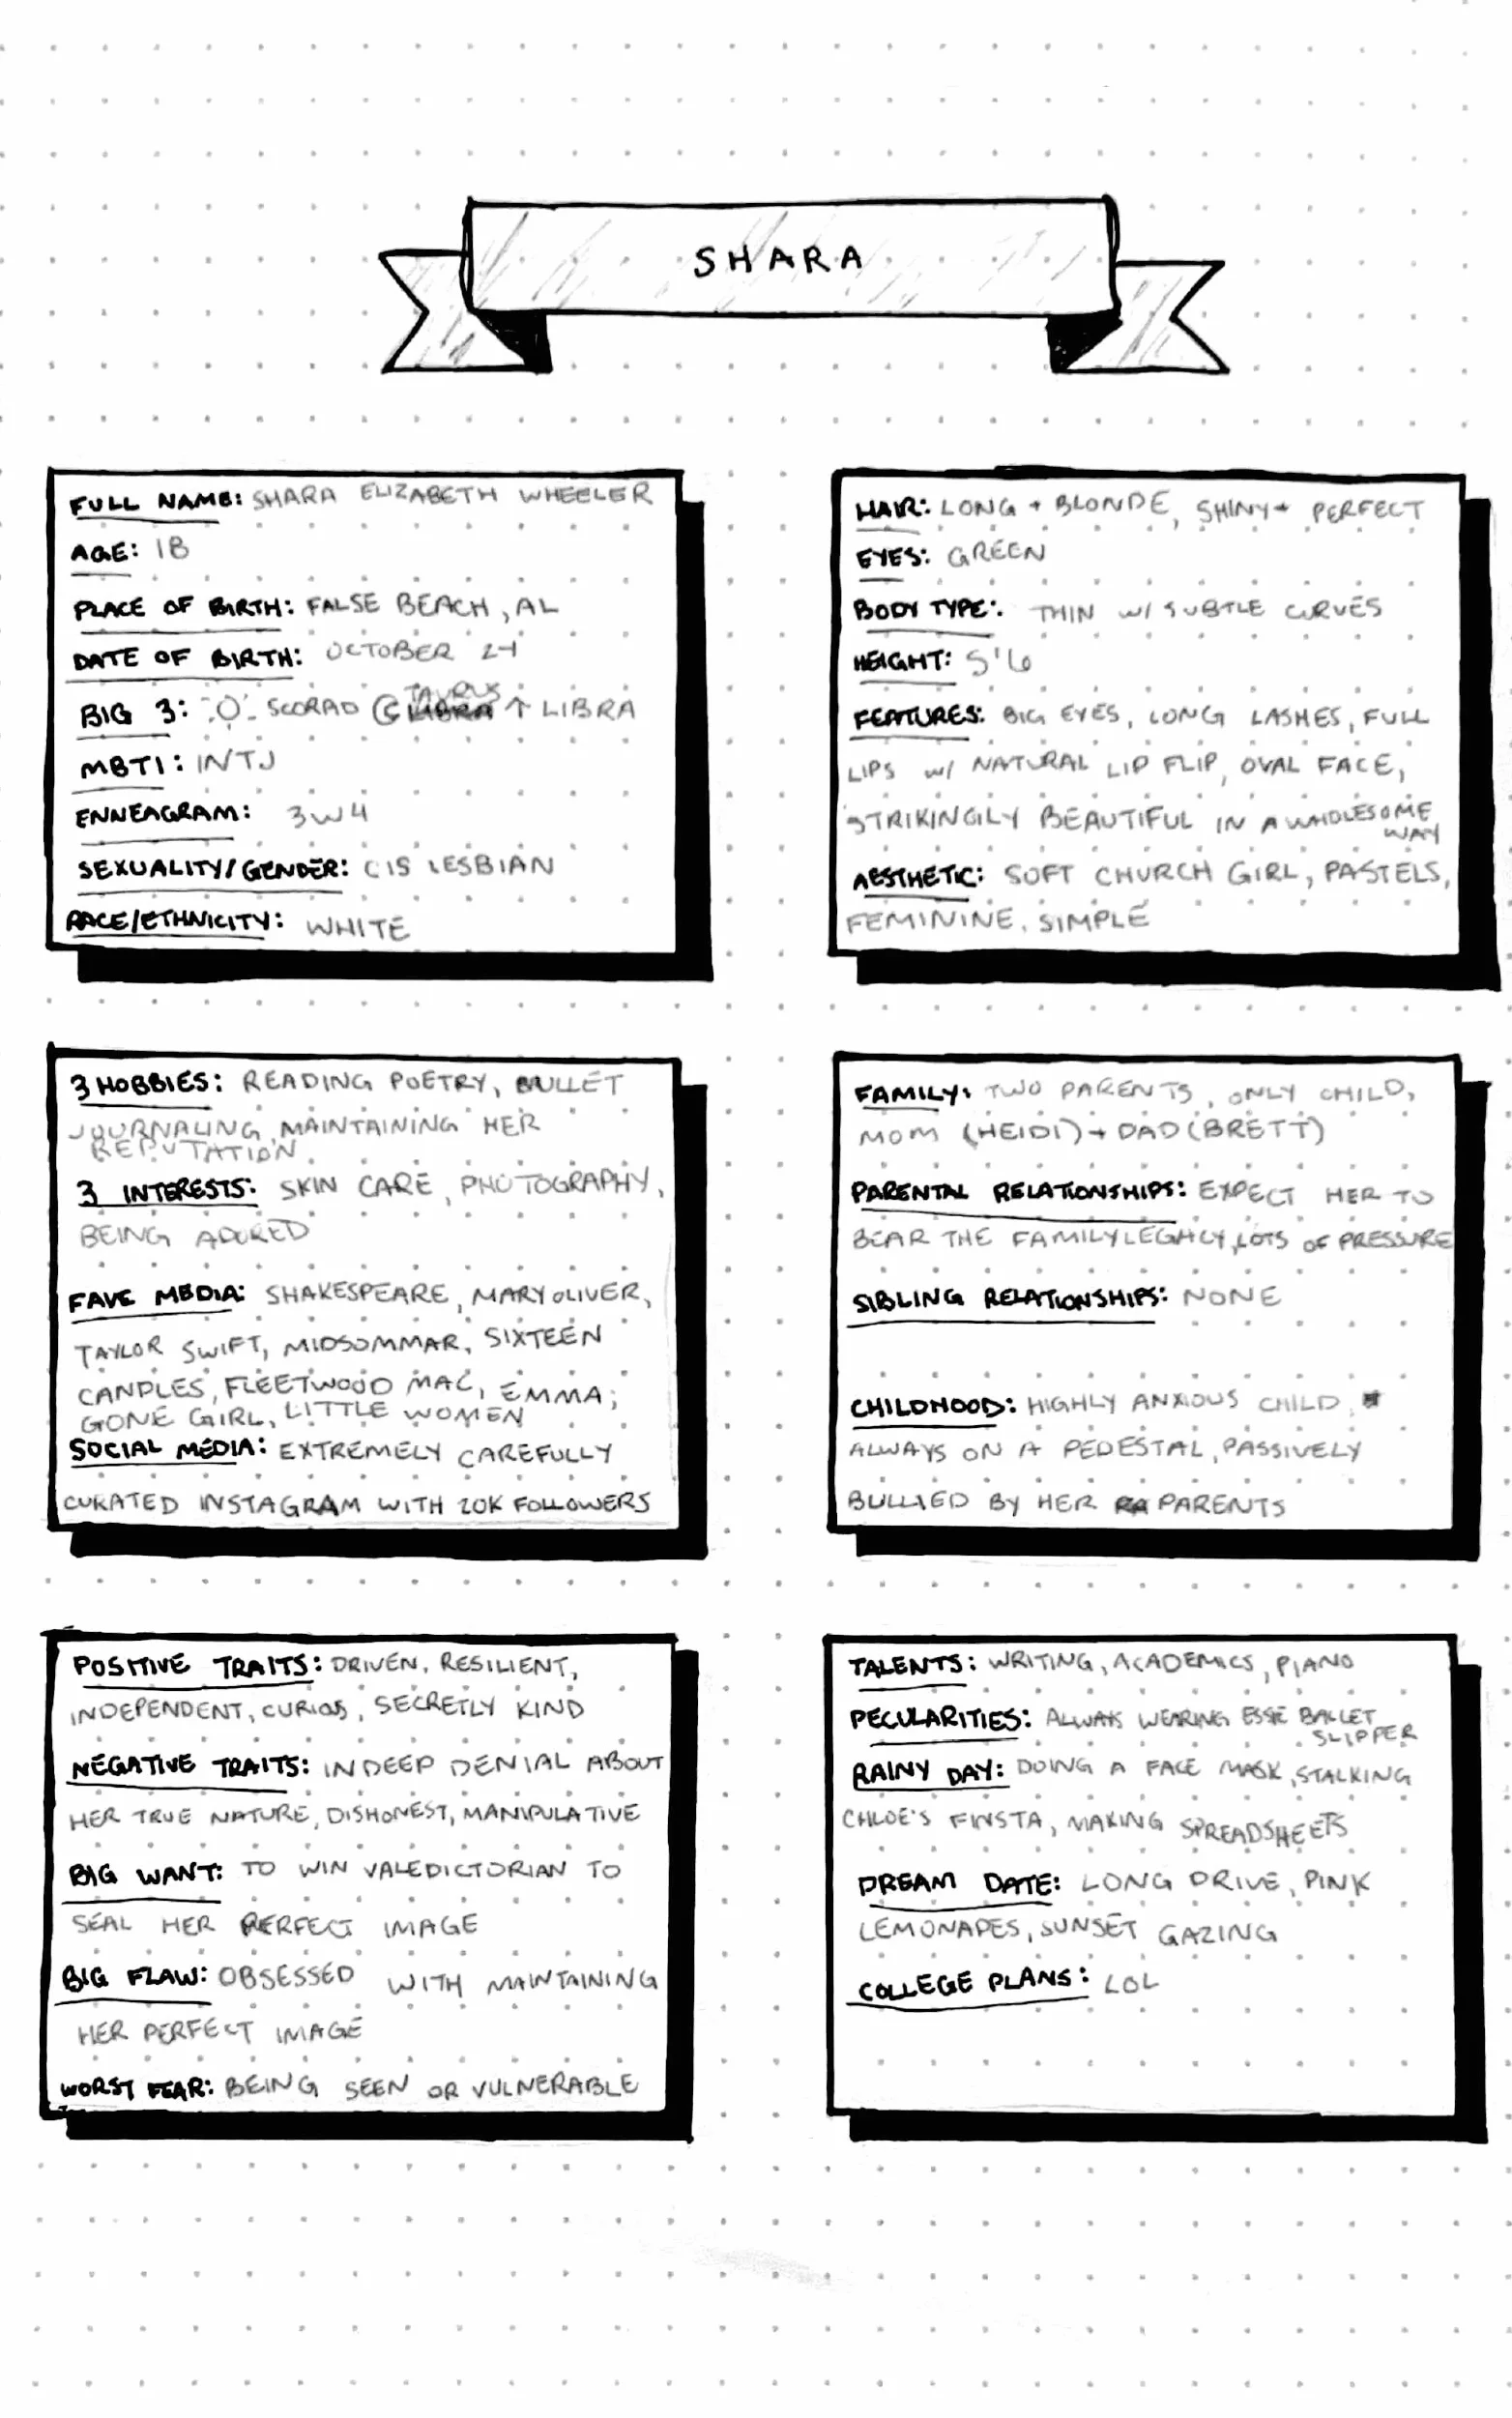 SHARA
FULL NAME: SHARA ELIZABETH WHEELER
AGE: 18
PLACE OF BIRTH: FALSE BEACH, AL
DATE OF BIRTH: OCTOBER 24
BIG 3: SCORPIO TAURUS ↑ LIBRA
MBTI: INTJ
ENNEAGRAM: 3W4
SEXUALITY/GENDER: CIS LESBIAN
RACE/ETHNICITY: WHITE
HAIR: LONG + BLONDE, SHINY + PERFECT
EYES: GREEN
BODY TYPE: THIN W/ SUBTLE CURVES
HEIGHT: 5'6
FEATURES: BIG EYES, LONG LASHES, FULL
LIPS W/ NATURAL LIP FLIP, OVAL FACE,
STRIKINGLY BEAUTIFUL IN A WHOLESOME
WAY
AESTHETIC: SOFT CHURCH GIRL, PASTELS,
FEMININE, SIMPLE
3 HOBBIES: READING POETRY, BULLET
JOURNALING, MAINTAINING HER
REPUTATION
3 INTERESTS: SKIN CARE, PHOTOGRAPHY,
BEING ADORED
FAVE MEDIA: SHAKESPEARE, MARY OLIVER,
TAYLOR SWIFT, MIDSOMMAR, SIXTEEN
CANDLES, FLEETWOOD MAC, EMMA,
GONE GIRL, LITTLE WOMEN
SOCIAL MEDIA: EXTREMELY CAREFULLY
CURATED INSTAGRAM WITH 20K FOLLOWERS
FAMILY: TWO PARENTS, ONLY CHILD,
MOM (HEIDI) + DAD (BRETT)
PARENTAL RELATIONSHIPS: EXPECT HER TO
BEAR THE FAMILY LEGACY, LOTS OF PRESSURE
SIBLING RELATIONSHIPS: NONE
CHILDHOOD: HIGHLY ANXIOUS CHILD,
ALWAYS ON A PEDESTAL, PASSIVELY
BULLIED BY HER PARENTS
POSITIVE TRAITS: DRIVEN, RESILIENT,
INDEPENDENT, CURIOUS, SECRETLY KIND
NEGATIVE TRAITS: IN DEEP DENIAL ABOUT
HER TRUE NATURE, DISHONEST, MANIPULATIVE
BIG WANT: TO WIN VALEDICTORIAN TO
SEAL HER PERFECT IMAGE
BIG FLAW: OBSESSED WITH MAINTAINING
HER PERFECT IMAGE
WORST FEAR: BEING SEEN OR VULNERABLE
TALENTS: WRITING, ACADEMICS, PIANO
PECULARITIES: ALWAYS WEARING ESSIE BALLET
SLIPPER
RAINY DAY: DOING A FACE MASK, STALKING
CHLOE'S FINSTA, MAKING SPREADSHEETS
DREAM DATE: LONG DRIVE, PINK
LEMONADES, SUNSET GAZING
COLLEGE PLANS: LOL